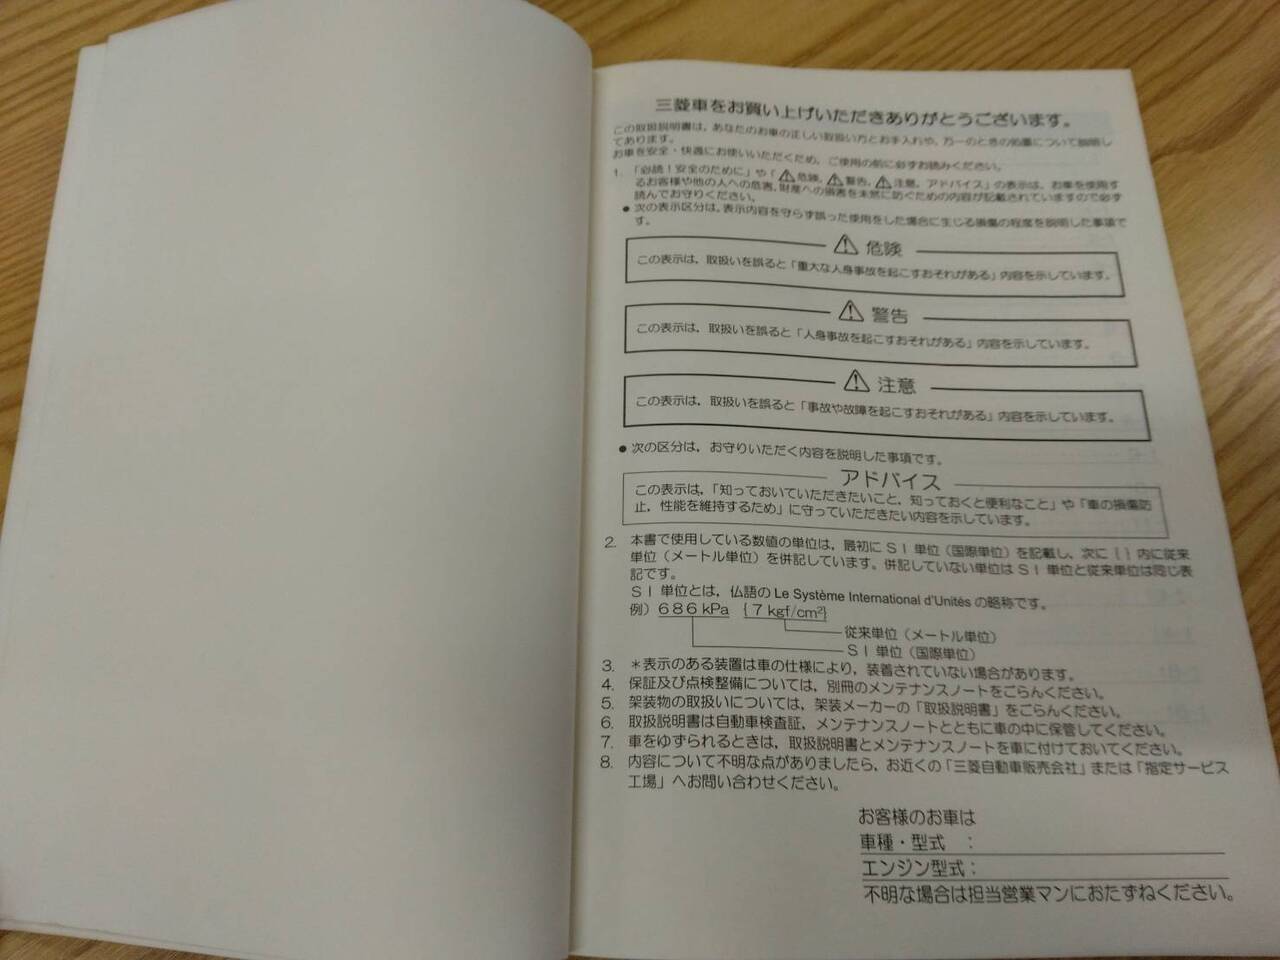 三菱車をお買い上げいただきありがとうございます。
この取扱説明書は、あなたのお車の正しい取扱い方とお手入れや、万一のときの処置について説明し
てあります。
お車を安全・快適にお使いいただくため、ご使用の前に必ずお読みください。
1. 「必読！安全のために」や「⚠危険、⚠警告、⚠注意、アドバイス」の表示は、お車を使用す
るお客様や他の人への危害、財産への損害を未然に防ぐための内容が記載されていますので必ず
読んでお守りください。
● 次の表示区分は、表示内容を守らず誤った使用をした場合に生じる損傷の程度を説明した事項で
す。
⚠ 危険
この表示は、取扱いを誤ると「重大な人身事故を起こすおそれがある」内容を示しています。
⚠ 警告
この表示は、取扱いを誤ると「人身事故を起こすおそれがある」内容を示しています。
⚠ 注意
この表示は、取扱いを誤ると「事故や故障を起こすおそれがある」内容を示しています。
● 次の区分は、お守りいただく内容を説明した事項です。
アドバイス
この表示は、「知っておいていただきたいこと、知っておくと便利なこと」や「車の損傷防
止、性能を維持するため」に守っていただきたい内容を示しています。
2. 本書で使用している数値の単位は、最初にＳＩ単位（国際単位）を記載し、次に｛ ｝内に従来
単位（メートル単位）を併記しています。併記していない単位はＳＩ単位と従来単位は同じ表
記です。
ＳＩ単位とは、仏語の Le Système International d'Unités の略称です。
例）６８６kPa ｛７kgf/cm²｝
従来単位（メートル単位）
ＳＩ単位（国際単位）
3. ＊表示のある装置は車の仕様により、装着されていない場合があります。
4. 保証及び点検整備については、別冊のメンテナンスノートをごらんください。
5. 架装物の取扱いについては、架装メーカーの「取扱説明書」をごらんください。
6. 取扱説明書は自動車検査証、メンテナンスノートとともに車の中に保管してください。
7. 車をゆずられるときは、取扱説明書とメンテナンスノートを車に付けておいてください。
8. 内容について不明な点がありましたら、お近くの「三菱自動車販売会社」または「指定サービス
工場」へお問い合わせください。
お客様のお車は
車種・型式 ：
エンジン型式：
不明な場合は担当営業マンにおたずねください。